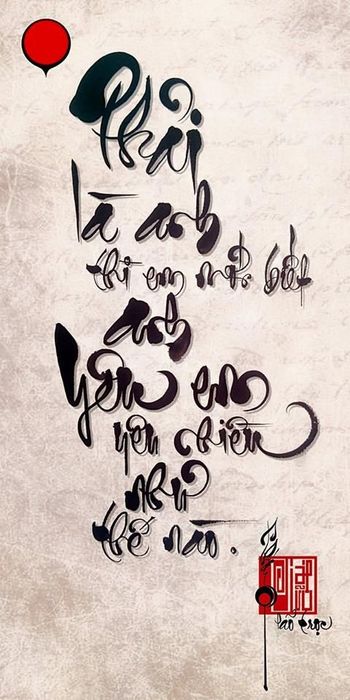 Phải
là anh
thì em mới biết
anh
yêu em
yêu nhiều
như
thế nào.